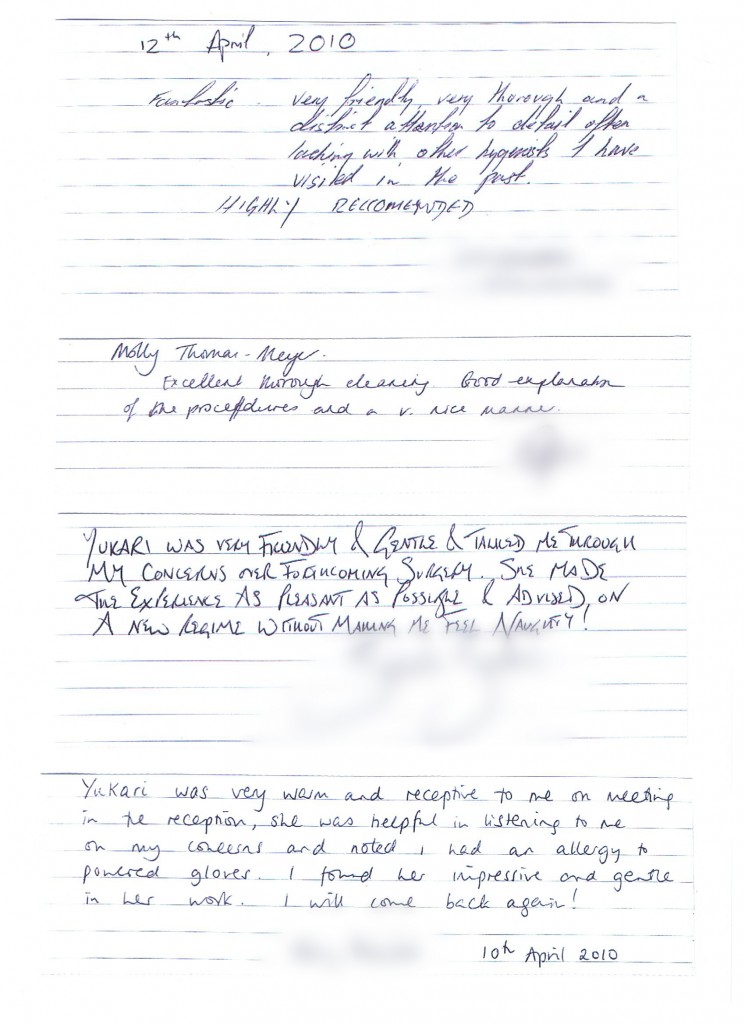 12th April, 2010
Fantastic very friendly, very thorough and a
distinct attention to detail often
lacking with other hygenists I have
visited in the past.
HIGHLY RECCOMENDED
Molly Thomas-Meyer.
Excellent thorough cleaning. Good explanation
of the procedures and a v. nice manner.
YUKARI WAS VERY FRIENDLY & GENTLE & TALKED ME THROUGH
MY CONCERNS OVER FORTHCOMING SURGERY. SHE MADE
THE EXPERIENCE AS PLEASANT AS POSSIBLE & ADVISED, ON
A NEW REGIME WITHOUT MAKING ME FEEL NAUGHTY!
Yukari was very warm and receptive to me on meeting
in the reception, she was helpful in listening to me
on my concerns and noted I had an allergy to
powered gloves. I found her impressive and gentle
in her work. I will come back again!
10th April 2010